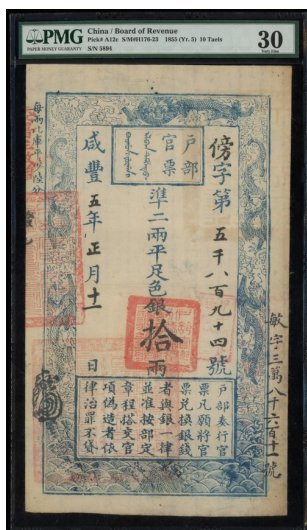 PMG
PAPER MONEY GUARANTY
China / Board of Revenue
Pick# A12c S/M#H176-23 1855 (Yr. 5) 10 Taels
S/N 5894
30
Very Fine
戶部
官票
傍字第五千八百九十四號
準二兩平足色銀拾兩
咸豐五年正月十一日
每兩比庫平
敏字三萬八千六百十一號
戶部奏行官
票凡願將官
票兌換銀錢
者與銀一律
並准按部定
章程搭交官
項偽造者依
律治罪不貸